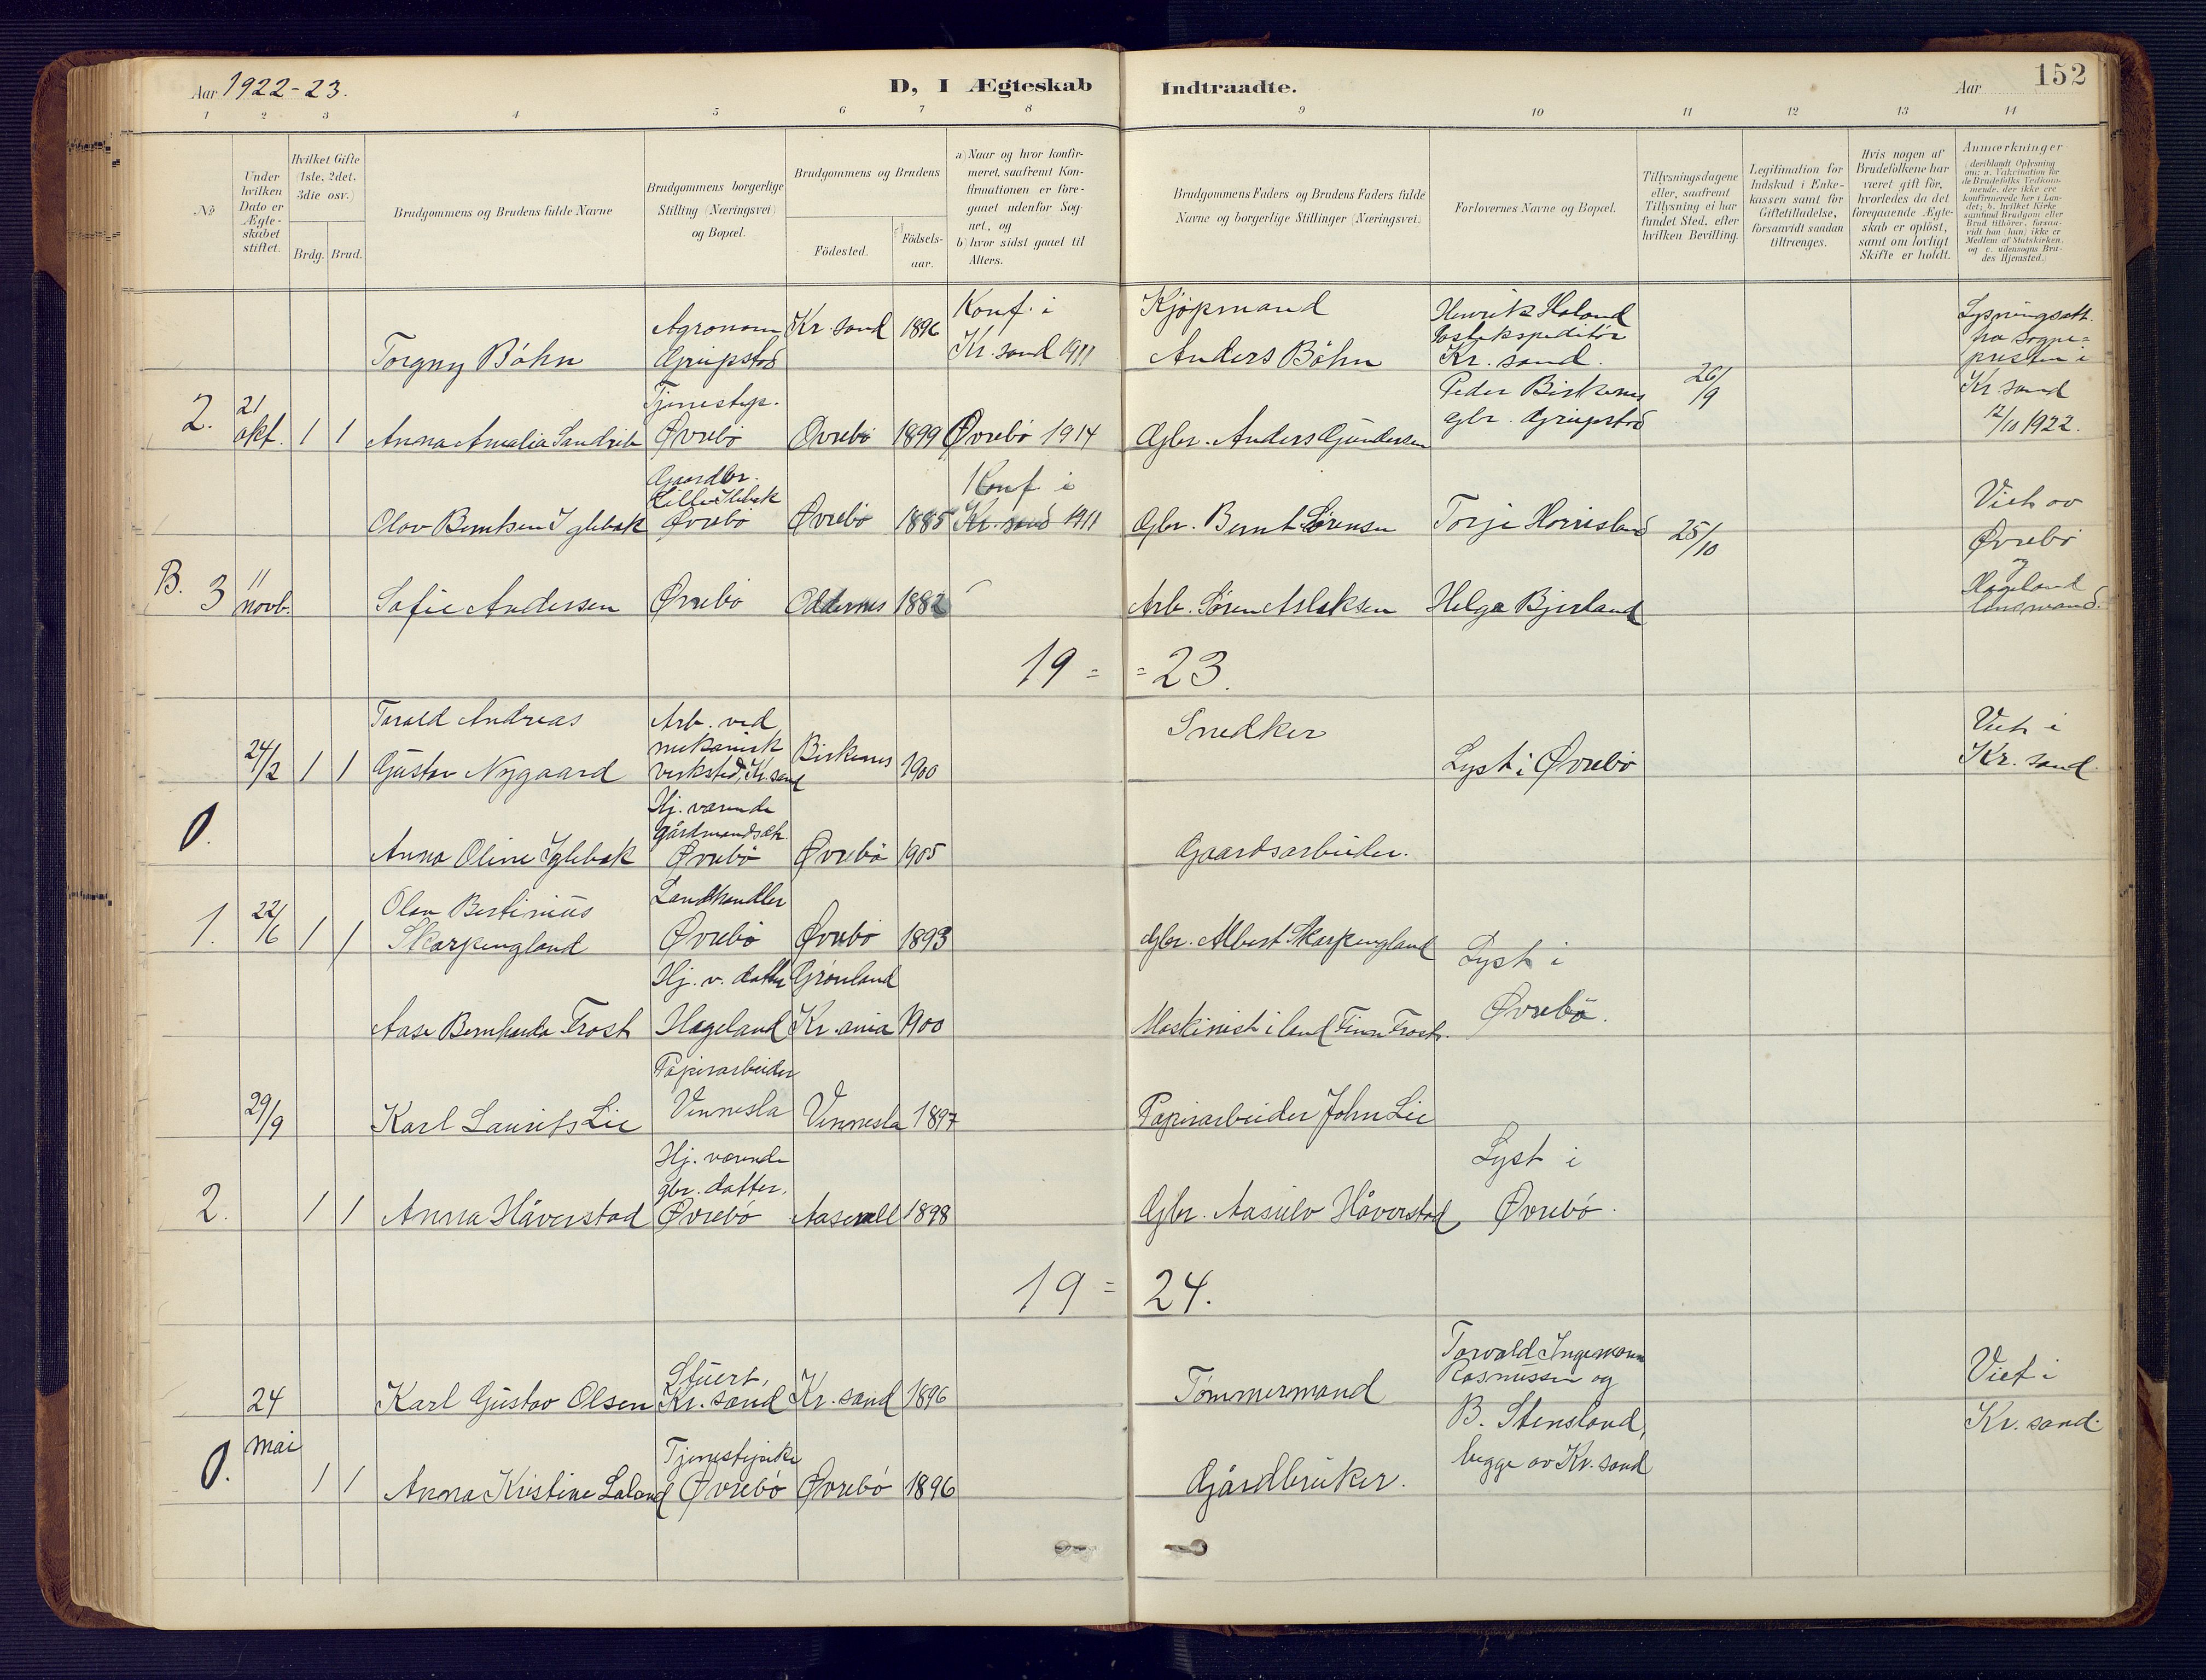 Aar 1922-23.
D, I Ægteskab Indtraadte.
Aar 152
1 2 3 4 5 6 7 8 9 10 11 12 13 14
No
Under hvilken Dato er Ægte-skabet stiftet.
Hvilket Gifte (1ste, 2det, 3die osv.)
Brdg. Brud.
Brudgommens og Brudens fulde Navne
Brudgommens borgerlige Stilling (Næringsvei) og Bopæl.
Brudgommens og Brudens
Födested. Födsels-aar.
a) Naar og hvor konfir-meret, saafremt Kon-firmationen er fore-gaaet udenfor Sog-net, og
b) hvor sidst gaaet til Alters.
Brudgommens Faders og Brudens Faders fulde Navne og borgerlige Stillinger (Næringsvei).
Forlovernes Navne og Bopæl.
Tillysningsdagene eller, saafremt Tillysning ei har fundet Sted, efter hvilken Bevilling.
Legitimation for Indskud i Enke-kassen samt for Giftetilladelse, forsaavidt saadan tiltrænges.
Hvis nogen af Brudefolkene har været gift för, hvorledes da det foregaaende Ægte-skab er oplöst, samt om lovligt Skifte er holdt.
Anmærkninger
(deriblandt Oplysning om: a. Vakcination for de Brudefolks Vedkom-mende, der ikke ere konfirmerede her i Lan-det; b. hvilket Kirke-samfund Brudgom eller Brud tilhörer, forsaa-vidt han (hun) ikke er Medlem af Statskirken, og c. udensogns Bru-des Hjemsted.)
Torgny Böhn
Agronom Gripstad
Kr. sand 1896
Konf. i Kr. sand 1911
Kjöpmand Anders Böhn
Henrik Haland Postekspeditör Kr. sand.
26/9
Lysningsatt. fra sogne-presten i Kr. sand 12/10 1922.
2. 21 okt. 1 1
Anna Amalia Sandrib
Tjenestep. Øvrebö
Øvrebö 1899 Øvrebö 1914
Gbr. Anders Gundersen
Peder Birkenes gbr. Gripstad
Olav Berntsen Iglebæk
Gaardbr. Lille Iglebæk Øvrebö
Øvrebö 1885
Konf. i Kr. sand 1911
Gbr. Bernt Sörensen
Torje Homesland
25/10
Viet av Øvrebö og Hægeland lensmand.
B. 3 11 novb.
Sofie Andersen
Øvrebö
Oddernes 1882
Arb. Sören Aslaksen
Helga Bjerland
19 = = 23.
24/2 1 1
Torald Andreas Gustav Nygaard
Arb. ved mekanisk verksted, Kr. sand
Birkenes 1900
Snedker
Lyst i Øvrebö
Viet i Kr. sand
0.
Anna Oline Iglebæk
Hj. værende gårdmandsdt. Øvrebö
Øvrebö 1905
Gaardsarbeider.
1. 22/6 1 1
Olav Bertinius Skarpengland
Landhandler Øvrebö
Øvrebö 1893
Gbr. Albert Skarpengland
Lyst i Øvrebö.
Aase Bernharda Frost
Hj. v. datter Hægeland
Grönland Kr.ania 1900
Maskinist i land Finn Frost.
29/9
Karl Laurits Lie
Papirarbeider Vennesla
Vennesla 1897
Papirarbeider John Lie
Lyst i Øvrebö.
2. 1 1
Anna Håverstad
Hj. værende gbr. datter. Øvrebö
Aaserall 1898
Gbr. Aasulv Håverstad
19 = 24.
24 mai
Karl Gustav Olsen
Stuert, Kr. sand
Kr. sand 1896
Tömmermand
Torvald Ingemann Rasmussen og B. Stensland, begge av Kr. sand
Viet i Kr. sand.
0. 1 1
Anna Kristine Laland
Tjenestepike Øvrebö
Øvrebö 1896
Gårdbruker.